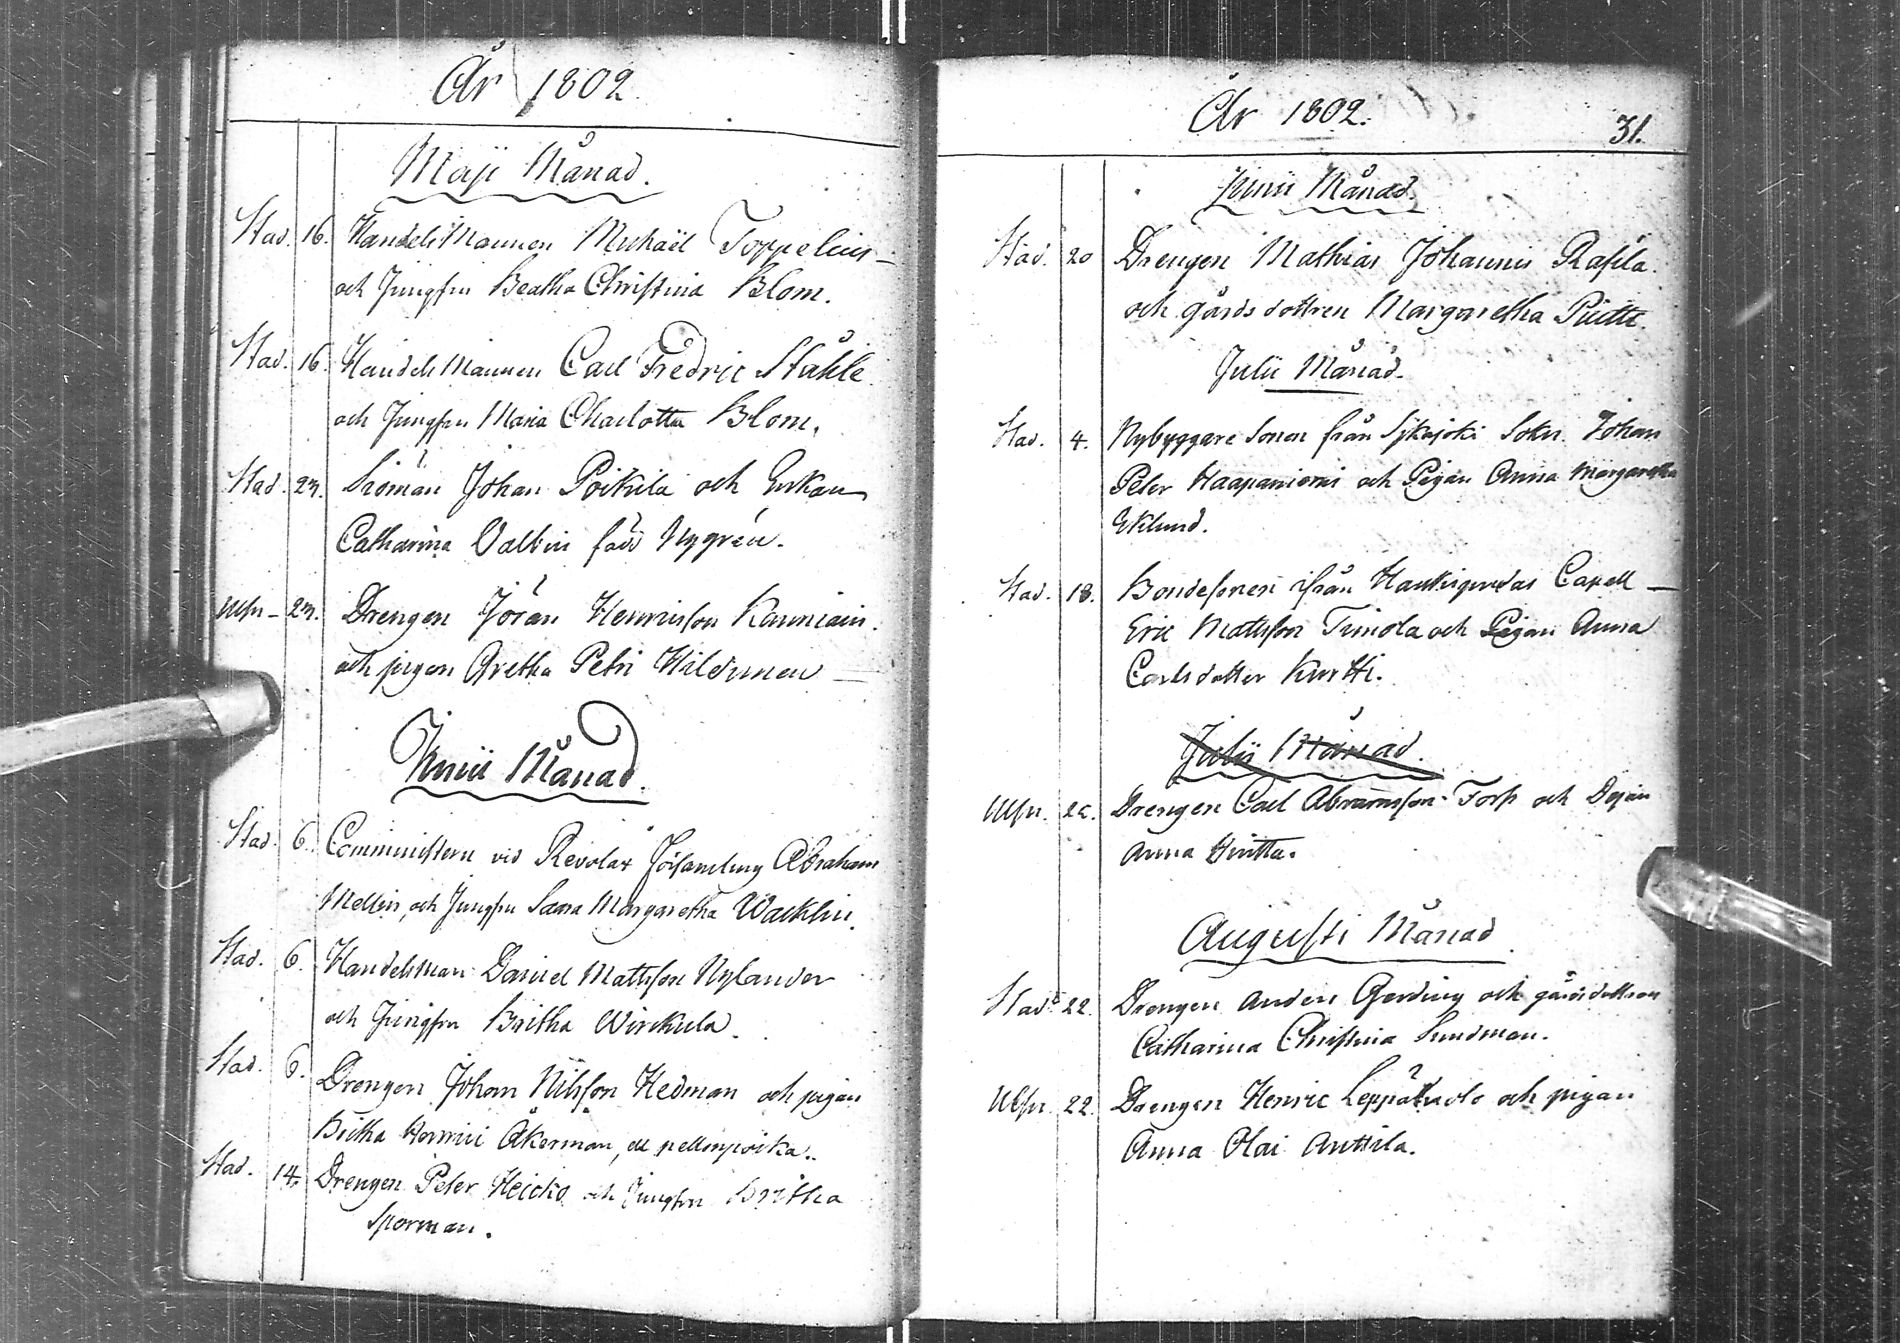 År 1802
Maji Månad.
Stad. 16. Handelsmannen Michaël Toppelius
och Jungfru Beatha Christina Blom.
Stad. 16. Handelsmannen Carl Fredric Ståhle
och Jungfru Maria Charlotta Blom.
Stad. 23. Siöman Johan Poikila och Enkan
Catharina Valbin född Nygrén.
23. Drengen Jöran Henricsson
och pigan Gretha Petri
Junii Månad.
Stad. 6. Comministern vid Revolax Församling Abraham
Mellin, och Jungfru Saara Margaretha Wacklin.
Stad. 6. Handelsman Daniel Mattsson Nylander
och Jungfru Britha Wirkula.
Stad. 6. Drengen Johan Nilsson Hedman och pigan
Britha Henrici Åkerman,
Stad. 14. Drengen Peter Heicko och Jungfru Britha
Sporman.
År 1802.
31.
Junii Månad.
Stad. 20 Drengen Mathias Johannis Rasila
och gårds dottren Margaretha
Julii Månad.
Stad. 4. Nybyggare Sonen från Sjkajoki Sokn Johan
Peter Haapaniemi och Pigan Anna Margaretha
Eklund.
Stad. 18. Bondesonen ifrån Haukipudas Capell
Eric Mattsson Timola och Pigan Anna
Carlsdotter Kurtti.
Julii Månad.
Drengen Carl Abramsson Torp och Pigan
Anna
Augusti Månad.
Stad 22. Drengen Anders Gerding och gårdsdottren
Catharina Christina Sundman.
22. Drengen Henric och pigan
Anna Olai Anttila.